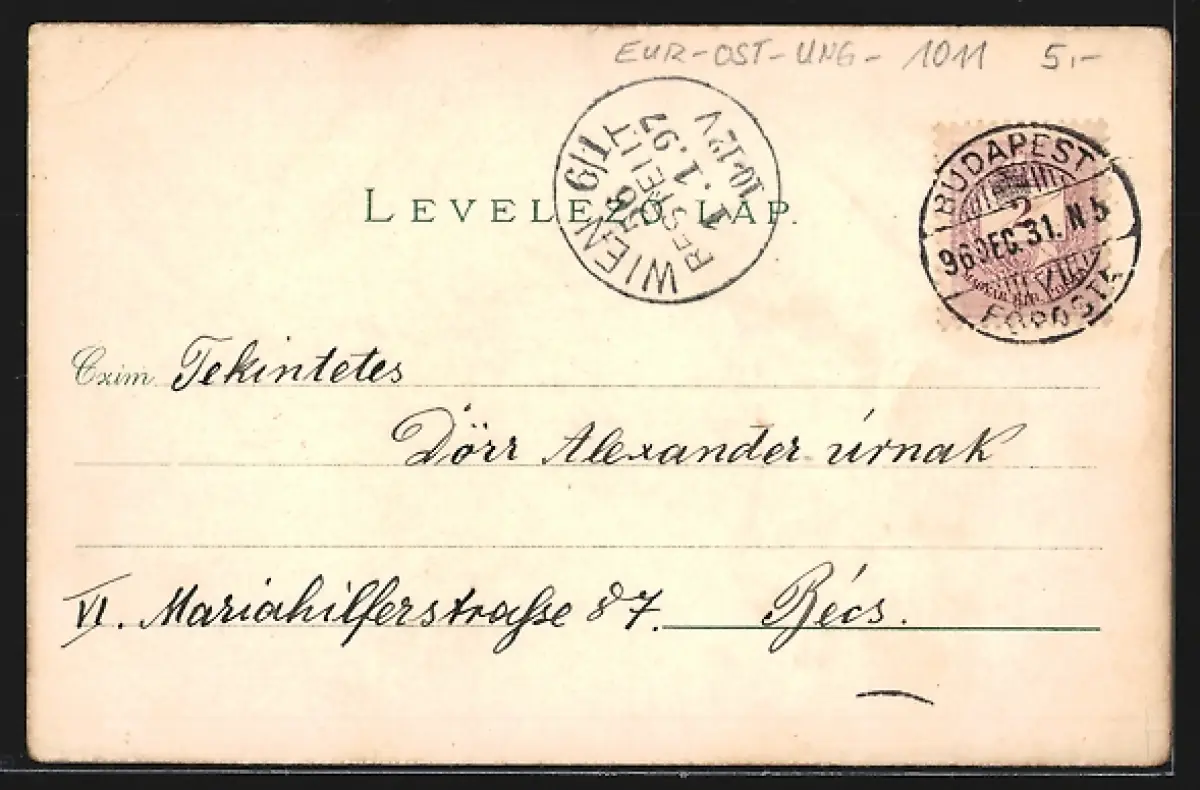 EUR-OST-UNG- 1011 5,-
LEVELEZŐ LAP.
WIEN 6/1
BESTELLT
1. 1. 97
10-12½V
BUDAPEST
96 DEC. 31. N 5
FŐPOSTA
2
MAGYAR KIR. POSTA
Czim. Tekintetes
Dörr Alexander úrnak
VI. Mariahilferstraße 87. Bécs.